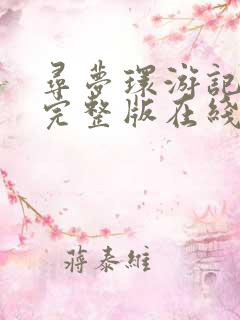 尋夢環游記
完整版在綫
蔣泰維